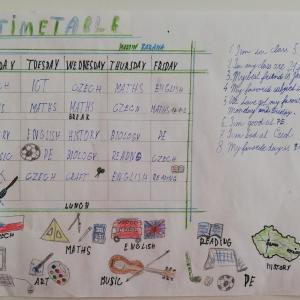 TIMETABLE
MARTIN BARANA
DAY TUESDAY WEDNESDAY THURSDAY FRIDAY
CH ICT CZECH MATHS ENGLISH
MATHS MATHS CZECH MATHS
BREAK
RY ENGLISH HISTORY BIOLOGY PE
SIC PE BIOLOGY READING CZECH
CZECH CRAFT ENGLISH READING
LUNCH
1 I'm in class 5
2 In my class are
3 My best friend is
4 My favorite subject
5 We have got my favor
Monday and Friday.
6 I'm good at PE
7 I'm bad at Czech
8 My favorite day is
MATHS
ENGLISH
READING
HISTORY
ART
MUSIC
PE